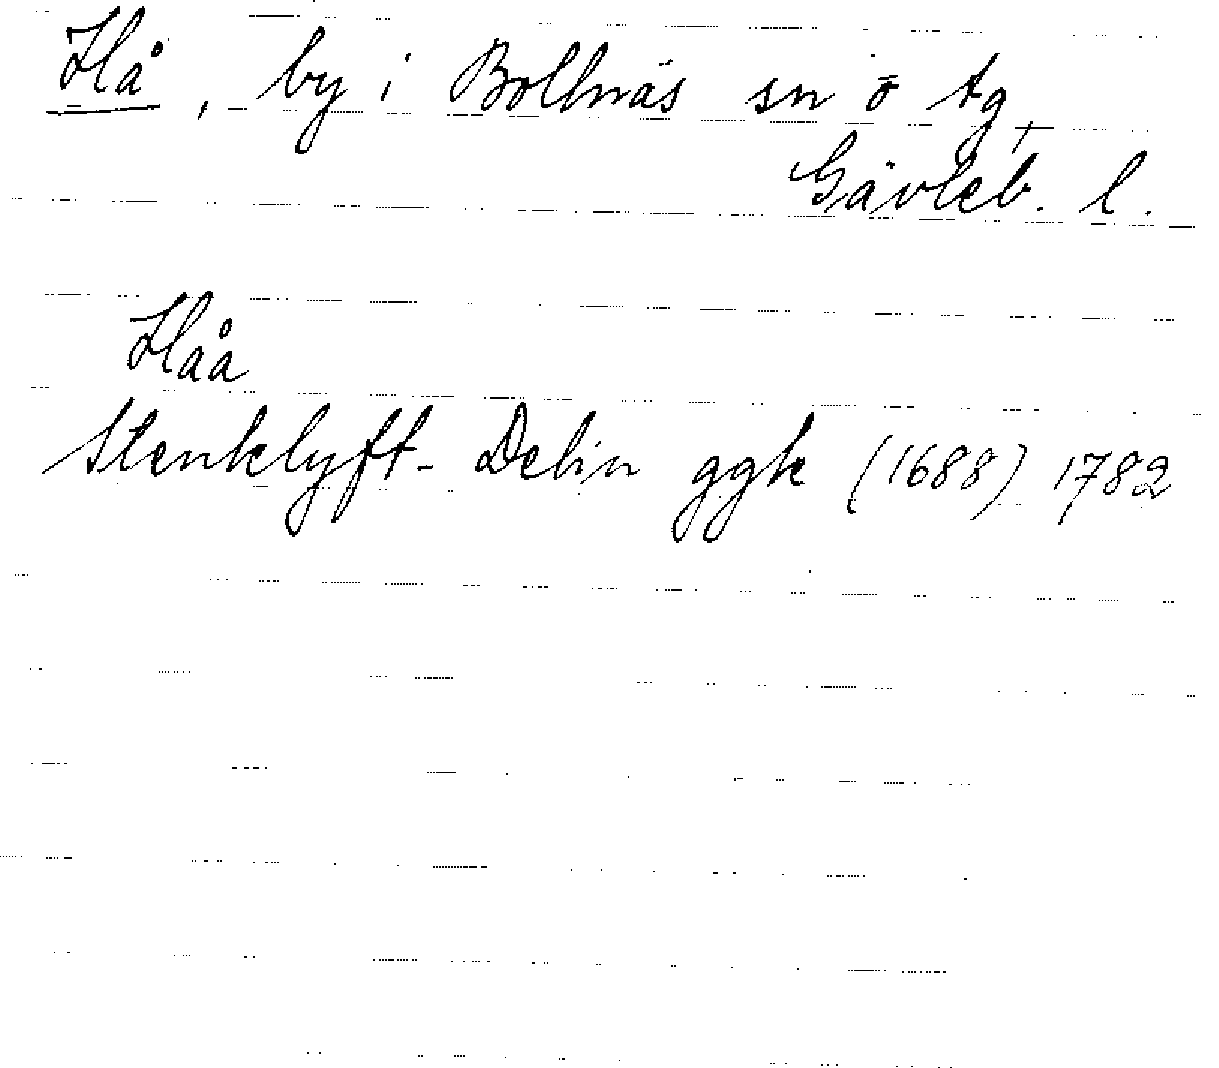 Hå, by i Bollnäs sn o tg,
Gävleb. l.
Håå
Stenklyft- Delin ggk (1688) 1782